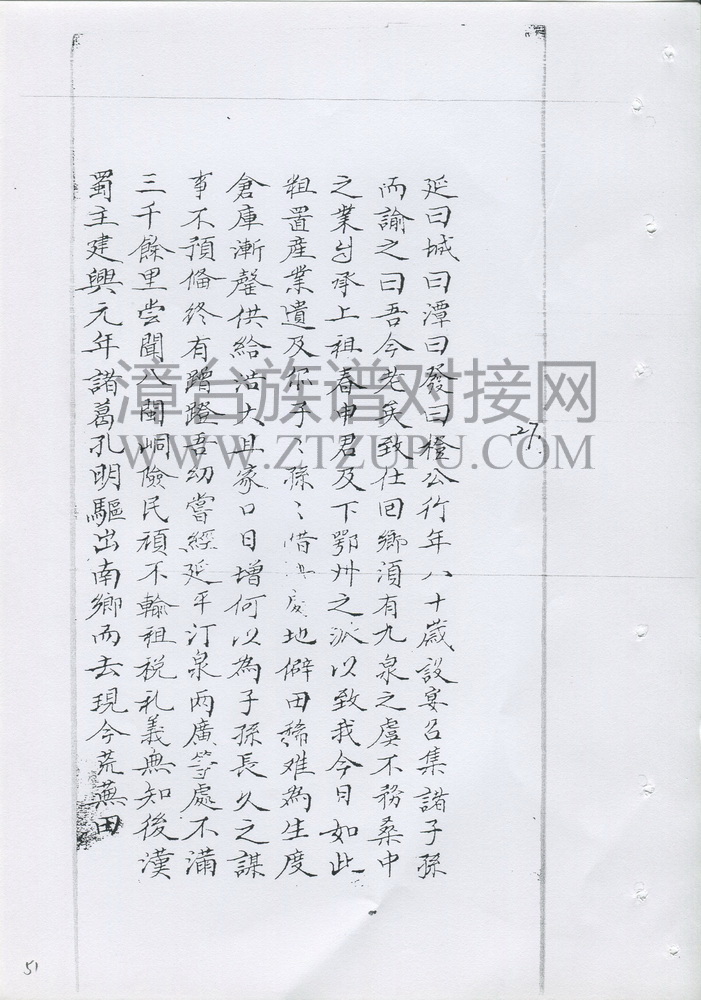 27.
延曰城曰潭曰發曰橙公行年八十歲設宴召集諸子孫
而諭之曰吾今老矣致仕回鄉須有九泉之虞不務桑中
之業自承上祖春申君及下鄂州之派以致我今日如此
粗置產業遺及尔子〻孫〻惜此處地僻田稀难為生度
倉庫漸罄供給浩大且家口日增何以為子孫長久之謀
事不預俻终有蹭蹬吾幼嘗經延平汀泉两廣等處不滿
三千餘里尝聞八閩峒險民頑不輸租税礼義無知後漢
蜀主建興元年諸葛孔明驅出南鄉而去現今荒蕪田
漳台族谱对接网
WWW.ZTZUPU.COM
51